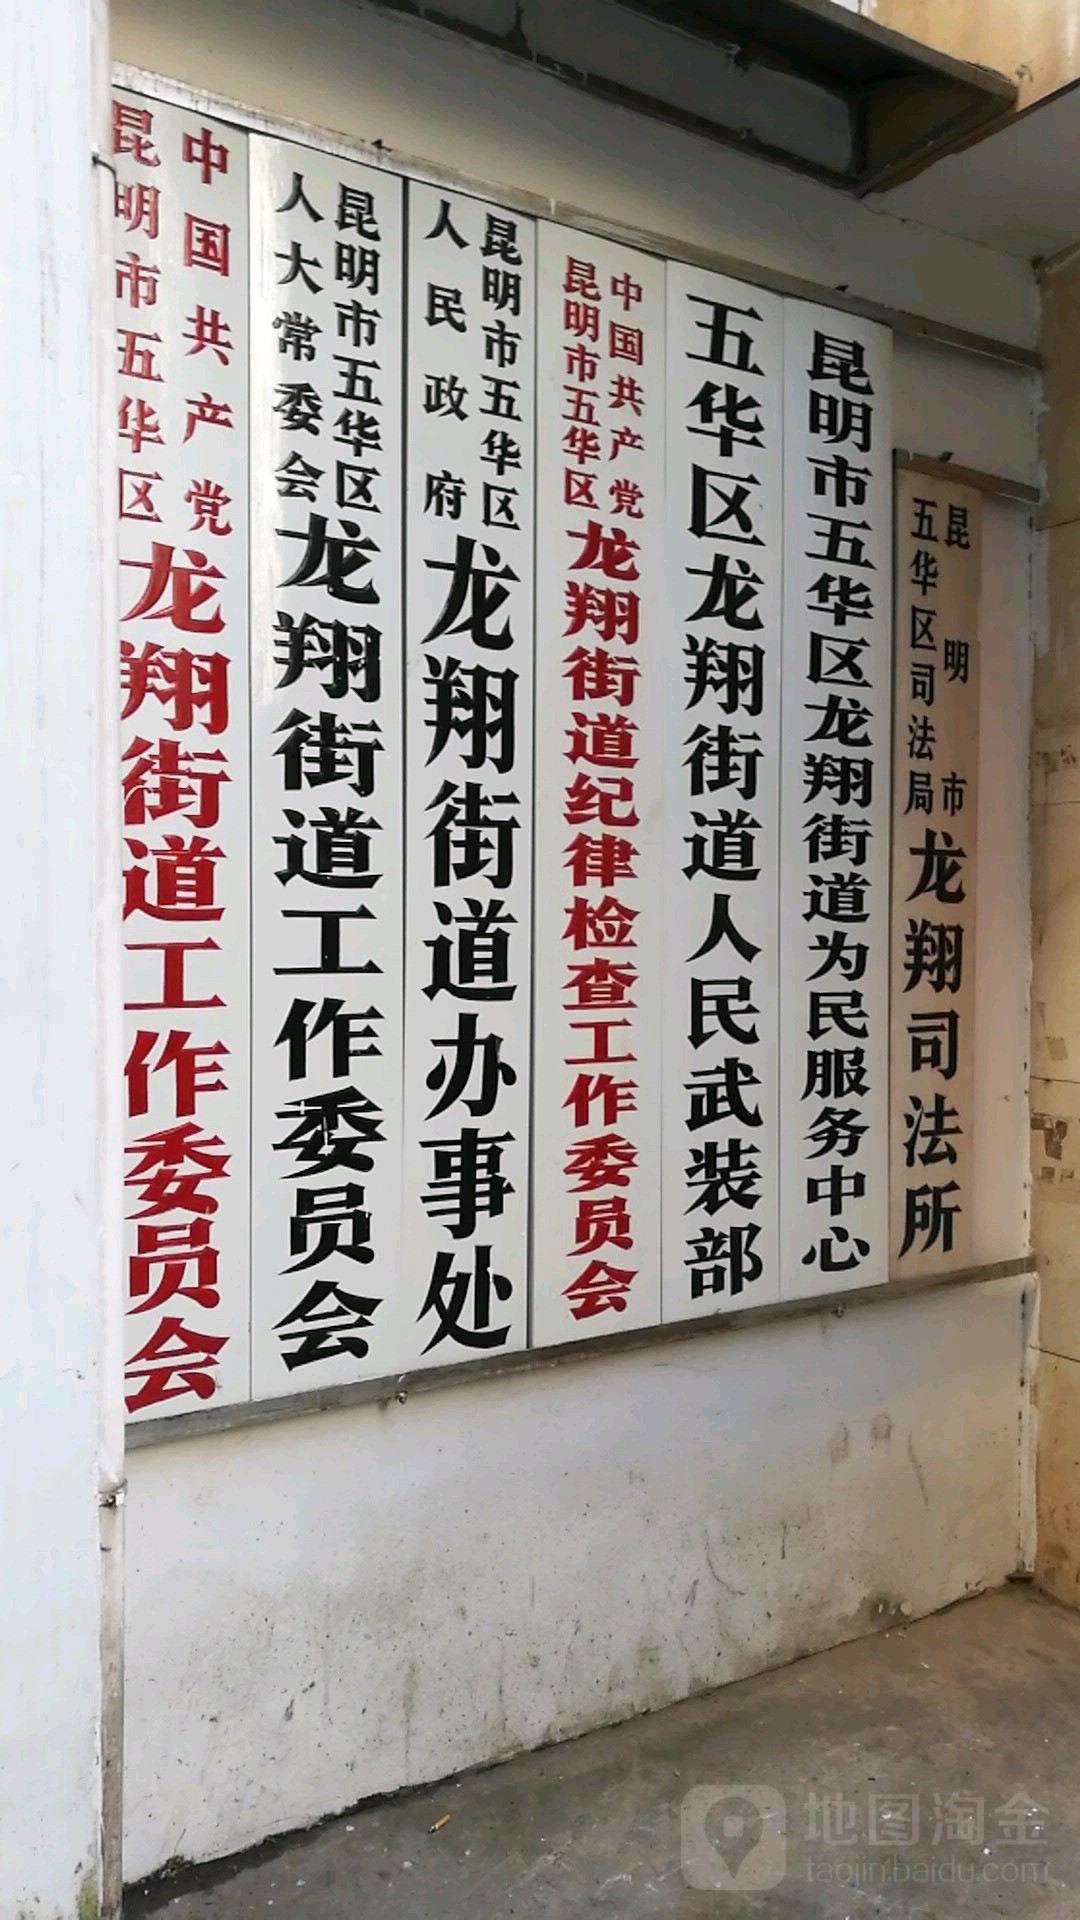 中国共产党
昆明市五华区
龙翔街道工作委员会
昆明市五华区
人大常委会
龙翔街道工作委员会
昆明市五华区
人民政府
龙翔街道办事处
中国共产党
昆明市五华区
龙翔街道纪律检查工作委员会
五华区龙翔街道人民武装部
昆明市五华区龙翔街道为民服务中心
昆明市
五华区司法局
龙翔司法所
地图淘金
taojin.baidu.com